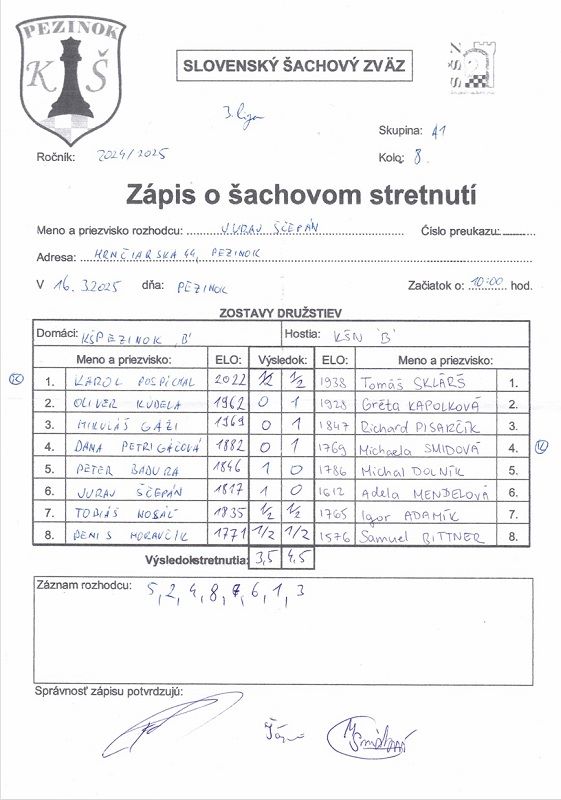 PEZINOK
K Š
SLOVENSKÝ ŠACHOVÝ ZVÄZ
SŠZ
3. liga
Skupina: A1
Ročník: 2024/2025
Kolo: 8.
Zápis o šachovom stretnutí
Meno a priezvisko rozhodcu: JURAJ ŠČEPÁN Číslo preukazu:
Adresa: HRNČIARSKA 44, PEZINOK
V 16.3.2025 dňa: PEZINOK Začiatok o: 10:00 hod.
ZOSTAVY DRUŽSTIEV
Domáci: KŠ PEZINOK 'B' Hostia: KŠN 'B'
Meno a priezvisko: ELO: Výsledok: ELO: Meno a priezvisko:
K 1. KAROL POSPÍCHAL 2022 1/2 1/2 1938 Tomáš SKLÁRŠ 1.
2. OLIVER KÚDELA 1962 0 1 1928 Gréta KAPOLKOVÁ 2.
3. MIKULÁŠ GAŽI 1969 0 1 1847 Richard PISARČÍK 3.
4. DANA PETRIGÁCOVÁ 1882 0 1 1769 Michaela SMIDOVÁ 4. K
5. PETER BADURA 1846 1 0 1786 Michal DOLNÍK 5.
6. JURAJ ŠČEPÁN 1817 1 0 1612 Adela MENDELOVÁ 6.
7. TOBIÁŠ NOSÁĽ 1835 1/2 1/2 1765 Igor ADAMÍK 7.
8. DENIS MORAVČÍK 1771 1/2 1/2 1576 Samuel BITTNER 8.
Výsledok stretnutia: 3,5 4,5
Záznam rozhodcu: 5, 2, 4, 8, 7, 6, 1, 3
Správnosť zápisu potvrdzujú: